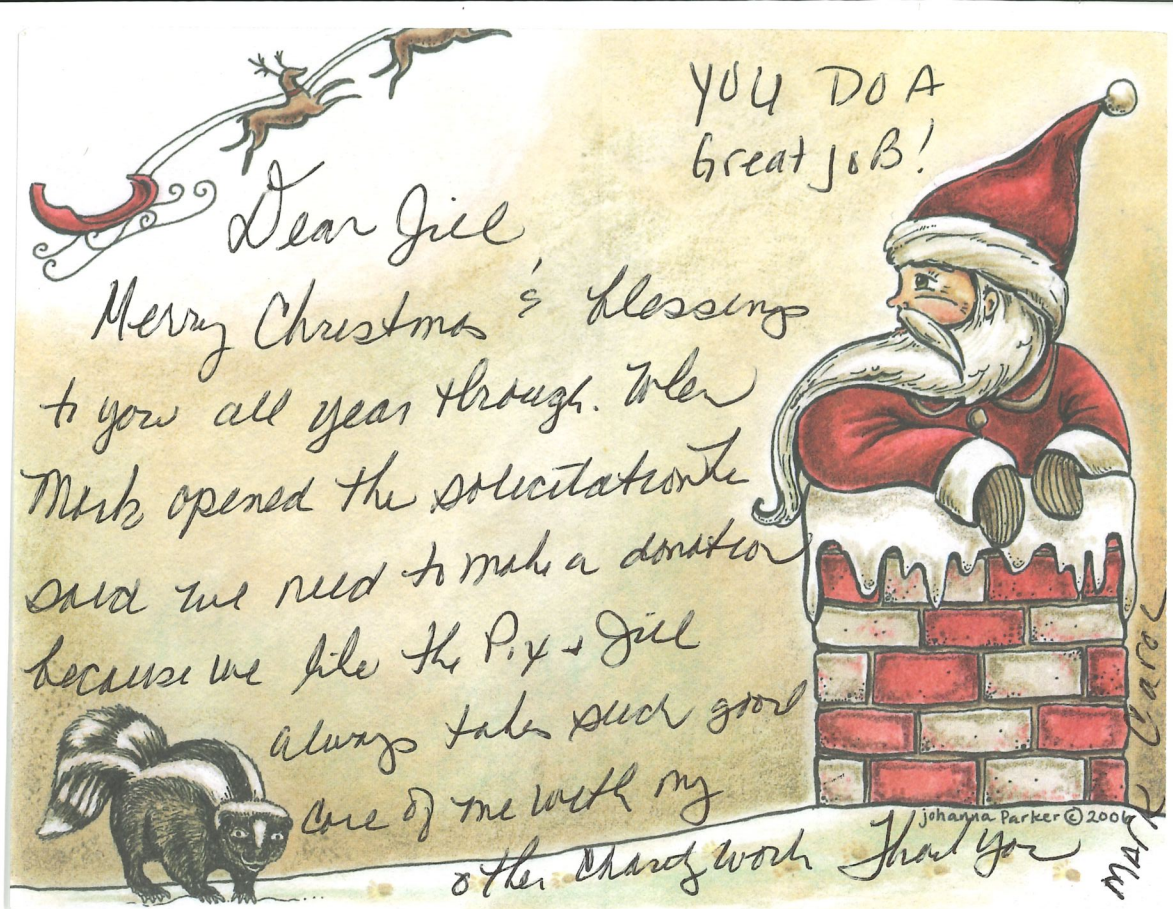 YOU DO A
Great JOB!
Dear Jill
Merry Christmas & blessings
to you all year through. When
Mark opened the solicitation he
said we need to make a donation
because we like the Pix + Jill
always takes such good
care of me with my
other Charity work Thank You
Mark Carol
johanna Parker © 2006